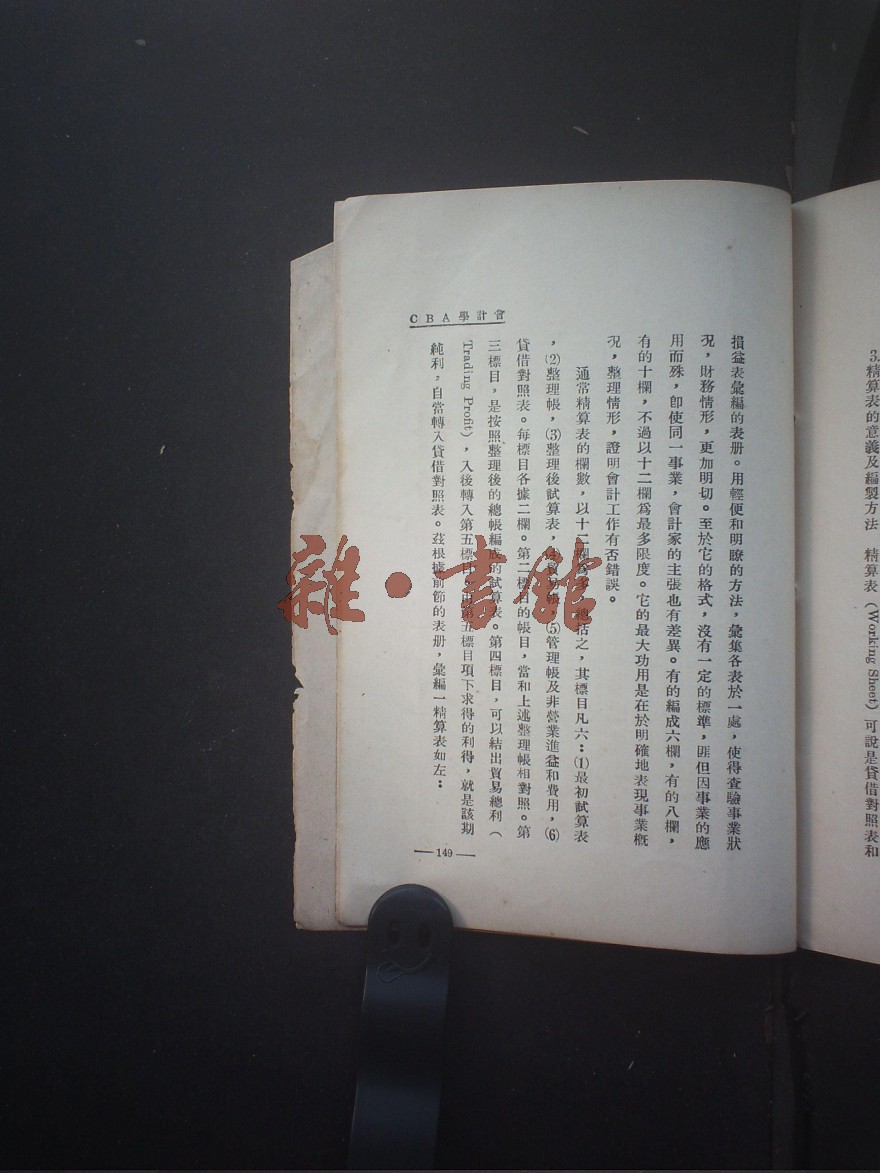 3. 精算表的意義及編製方法　精算表（Working Sheet）可說是貸借對照表和
損益表彙編的表册。用輕便和明瞭的方法，彙集各表於一處，使得查驗事業狀
況，財務情形，更加明切。至於它的格式，沒有一定的標準，匪但因事業的應
用而殊，卽使同一事業，會計家的主張也有差異。有的編成六欄，有的八欄，
有的十欄，不過以十二欄爲最多限度。它的最大功用是在於明確地表現事業概
況，整理情形，證明會計工作有否錯誤。
通常精算表的欄數，以十二欄爲多，總括之，其標目凡六：(1)最初試算表
，(2)整理帳，(3)整理後試算表，(4)貿易帳，(5)管理帳及非營業進益和費用，(6)
貸借對照表。每標目各據二欄。第二標目的帳目，當和上述整理帳相對照。第
三標目，是按照整理後的總帳編成的試算表。第四標目，可以結出貿易總利（
Trading Profit），入後轉入第五標目。由第五標目項下求得的利得，就是該期
純利，自當轉入貸借對照表。茲根據前節的表册，彙編一精算表如左：
會計學ABC
—149—
雜·書館